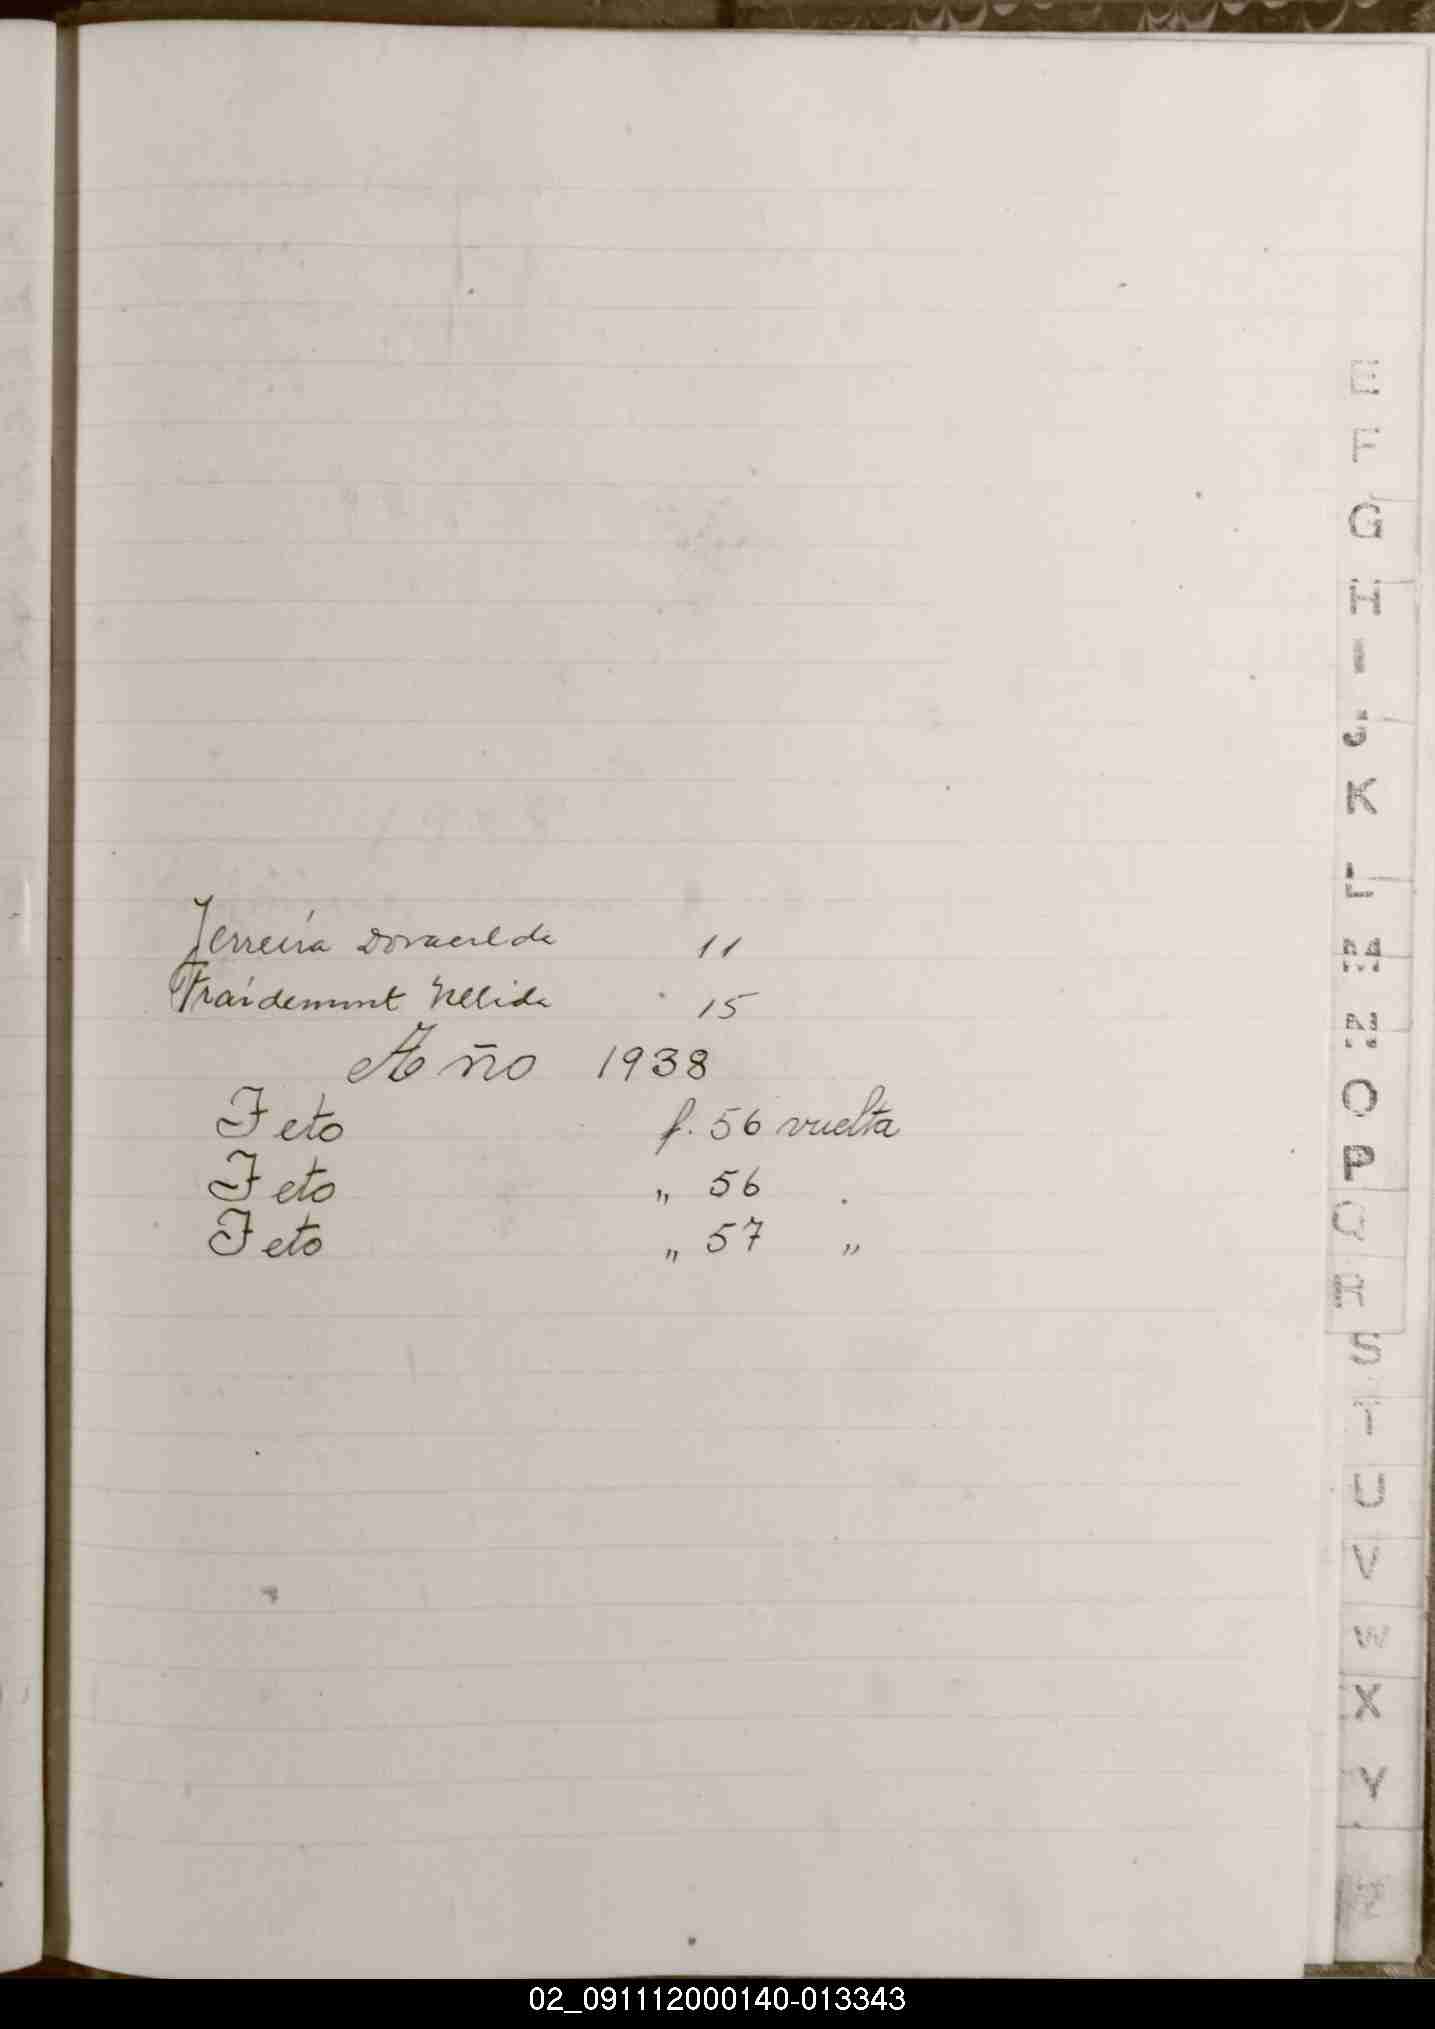 Ferreira Doraelda 11
Fraidemunt Nelida 15
Año 1938
Feto f. 56 vuelta
Feto „ 56 .
Feto „ 57 „
E
F
G
H
I
J
K
L
M
N
O
P
Q
R
S
T
U
V
W
X
Y
Z
02_091112000140-013343